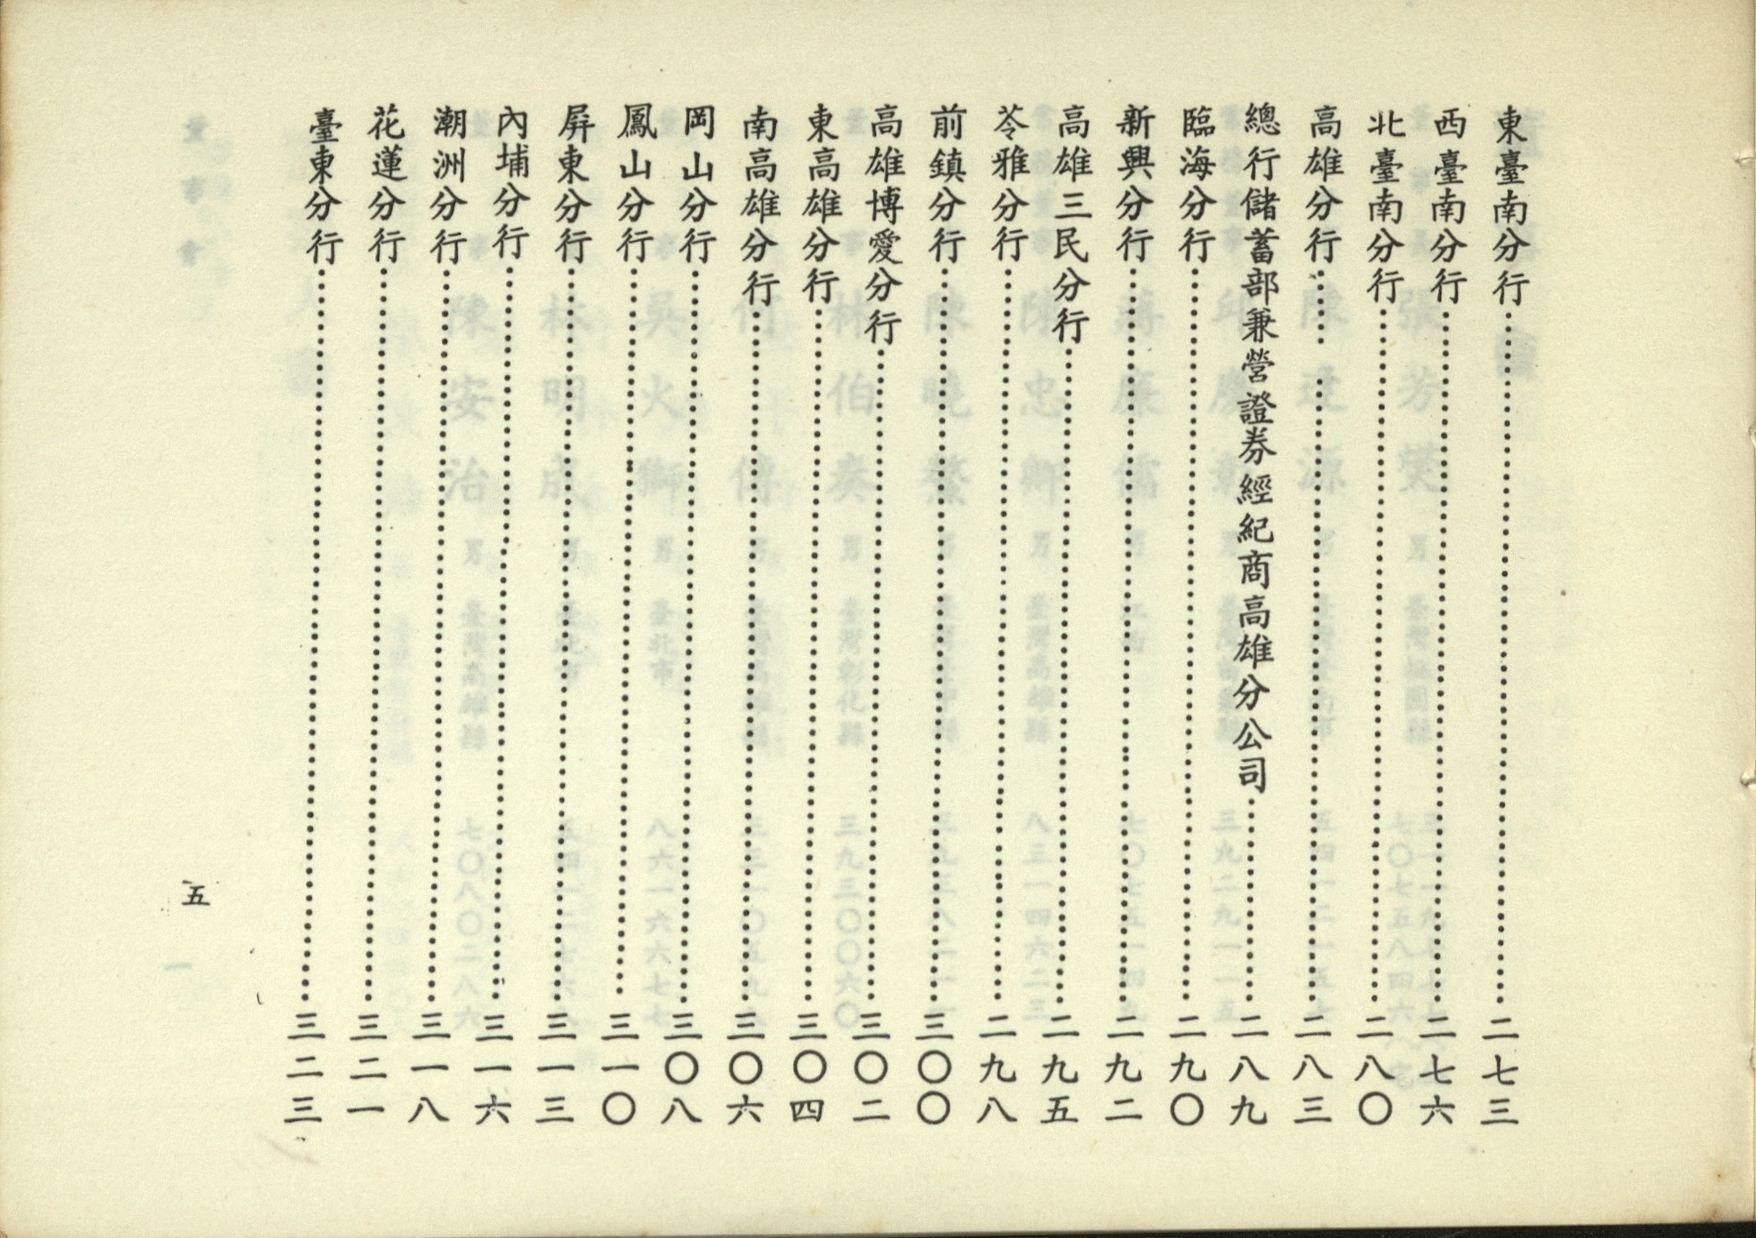 東臺南分行……二七三
西臺南分行……二七六
北臺南分行……二八〇
高雄分行……二八三
總行儲蓄部兼營證券經紀商高雄分公司……二八九
臨海分行……二九〇
新興分行……二九二
高雄三民分行……二九五
苓雅分行……二九八
前鎮分行……三〇〇
高雄博愛分行……三〇二
東高雄分行……三〇四
南高雄分行……三〇六
岡山分行……三〇八
鳳山分行……三一〇
屏東分行……三一三
內埔分行……三一六
潮洲分行……三一八
花蓮分行……三二一
臺東分行……三二三
五